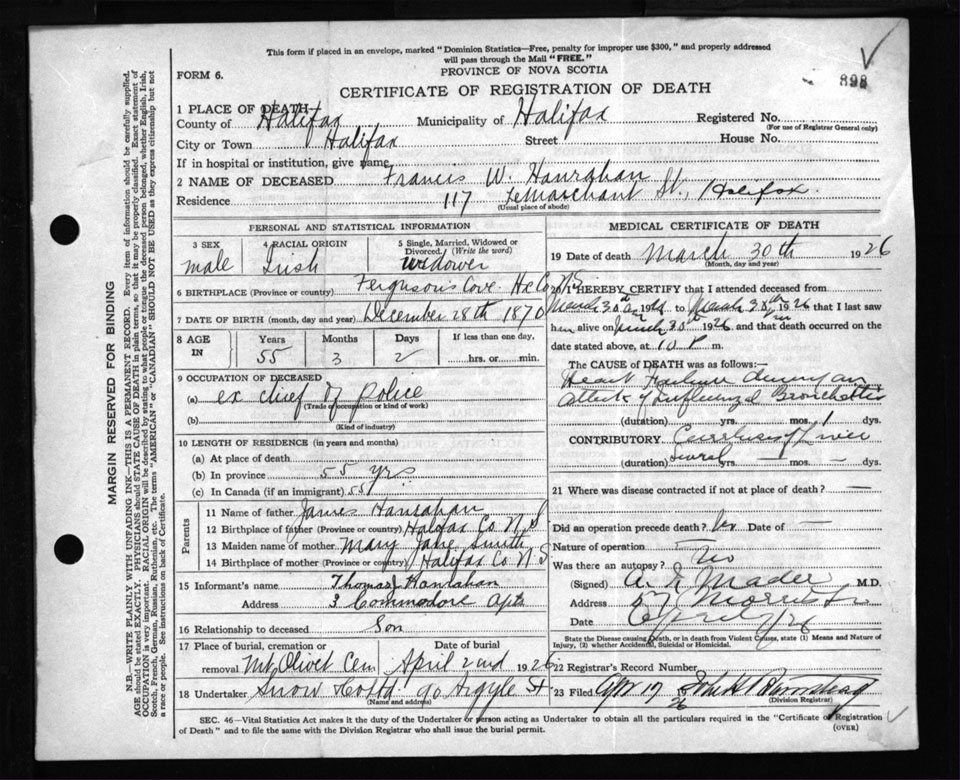 This form if placed in an envelope, marked "Dominion Statistics—Free, penalty for improper use $300," and properly addressed
will pass through the Mail "FREE."
FORM 6.
PROVINCE OF NOVA SCOTIA
898
CERTIFICATE OF REGISTRATION OF DEATH
1 PLACE OF DEATH—
County of Halifax Municipality of Halifax Registered No.
(For use of Registrar General only)
City or Town Halifax Street House No.
If in hospital or institution, give name
2 NAME OF DECEASED Francis W. Hanrahan
Residence 117 LeMarchant St., Halifax.
(Usual place of abode)
PERSONAL AND STATISTICAL INFORMATION
3 SEX 4 RACIAL ORIGIN 5 Single, Married, Widowed or
Divorced. (Write the word)
male Irish Widower
6 BIRTHPLACE (Province or country) Ferguson's Cove Hx Co NS
7 DATE OF BIRTH (month, day and year) December 28th 1870
8 AGE IN Years Months Days If less than one day,
55 3 2 hrs. or min.
9 OCCUPATION OF DECEASED
(a) ex chief of police
(Trade or occupation or kind of work)
(b)
(Kind of industry)
10 LENGTH OF RESIDENCE (in years and months)
(a) At place of death
(b) In province 55 yrs
(c) In Canada (if an immigrant) 55
Parents
11 Name of father James Hanrahan
12 Birthplace of father (Province or country) Halifax Co N S
13 Maiden name of mother Mary Jane Smith
14 Birthplace of mother (Province or country) Halifax Co N S
15 Informant's name Thomas J Hanrahan
Address 3 Commodore Apts
16 Relationship to deceased Son
17 Place of burial, cremation or Date of burial
removal Mt Olivet Cem April 2nd 1926
18 Undertaker Snow & Co Ltd 90 Argyle St
(Name and address)
MEDICAL CERTIFICATE OF DEATH
19 Date of death March 30th 1926
(Month, day and year)
20 I HEREBY CERTIFY that I attended deceased from
March 30th to March 30th 1926 that I last saw
him alive on March 30th 1926 and that death occurred on
the date stated above, at 10 P m.
The CAUSE of DEATH was as follows:—
Heart Failure during an
attack of Influenzal Bronchitis
(duration) yrs. mos. 1 dys.
CONTRIBUTORY Cirrhosis of Liver
(duration) several yrs. — mos. — dys.
21 Where was disease contracted if not at place of death? —
Did an operation precede death? No Date of —
Nature of operation —
Was there an autopsy? No
(Signed) Mader M.D.
Address 57 Morris St
Date April 1/26
State the Disease causing Death, or in death from Violent Causes, state (1) Means and Nature of
Injury, (2) whether Accidental, Suicidal or Homicidal.
22 Registrar's Record Number
23 Filed Apr 17 1926 John H
(Division Registrar)
SEC. 46—Vital Statistics Act makes it the duty of the Undertaker or person acting as Undertaker to obtain all the particulars required in the "Certificate of Registration
of Death" and to file the same with the Division Registrar who shall issue the burial permit.
(OVER)
MARGIN RESERVED FOR BINDING
N.B.—WRITE PLAINLY WITH UNFADING INK—THIS IS A PERMANENT RECORD. Every item of information should be carefully supplied.
AGE should be stated EXACTLY. PHYSICIANS should STATE CAUSE OF DEATH in plain terms, so that it may be properly classified. Exact statement of
OCCUPATION is very important. RACIAL ORIGIN will be described by stating to what people or tongue the deceased person belonged, whether English, Irish,
Scotch, French, German, Russian, Ruthenian, etc. The terms "AMERICAN" or "CANADIAN" SHOULD NOT BE USED as they express citizenship but not
a race or people. See instructions on back of Certificate.